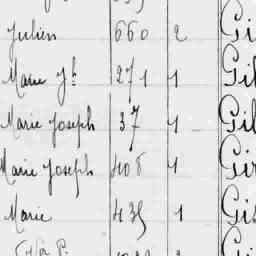 Julien 660 2 Gi
Marie Jh 271 1 Gil
Marie Joseph 37 1 Gil
Marie Joseph 408 1 Gir
Marie 435 1 Gis